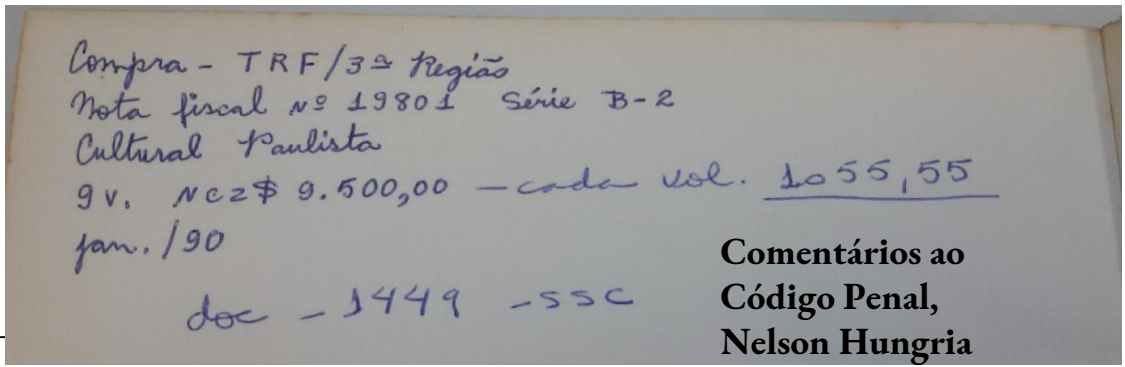 Compra - TRF/3ª Região
Nota fiscal Nº 19801 Série B-2
Cultural Paulista
9 v. NCz$ 9.500,00 - cada vol. 1055,55
jan./90
doc - 1449 - SSC
Comentários ao
Código Penal,
Nelson Hungria